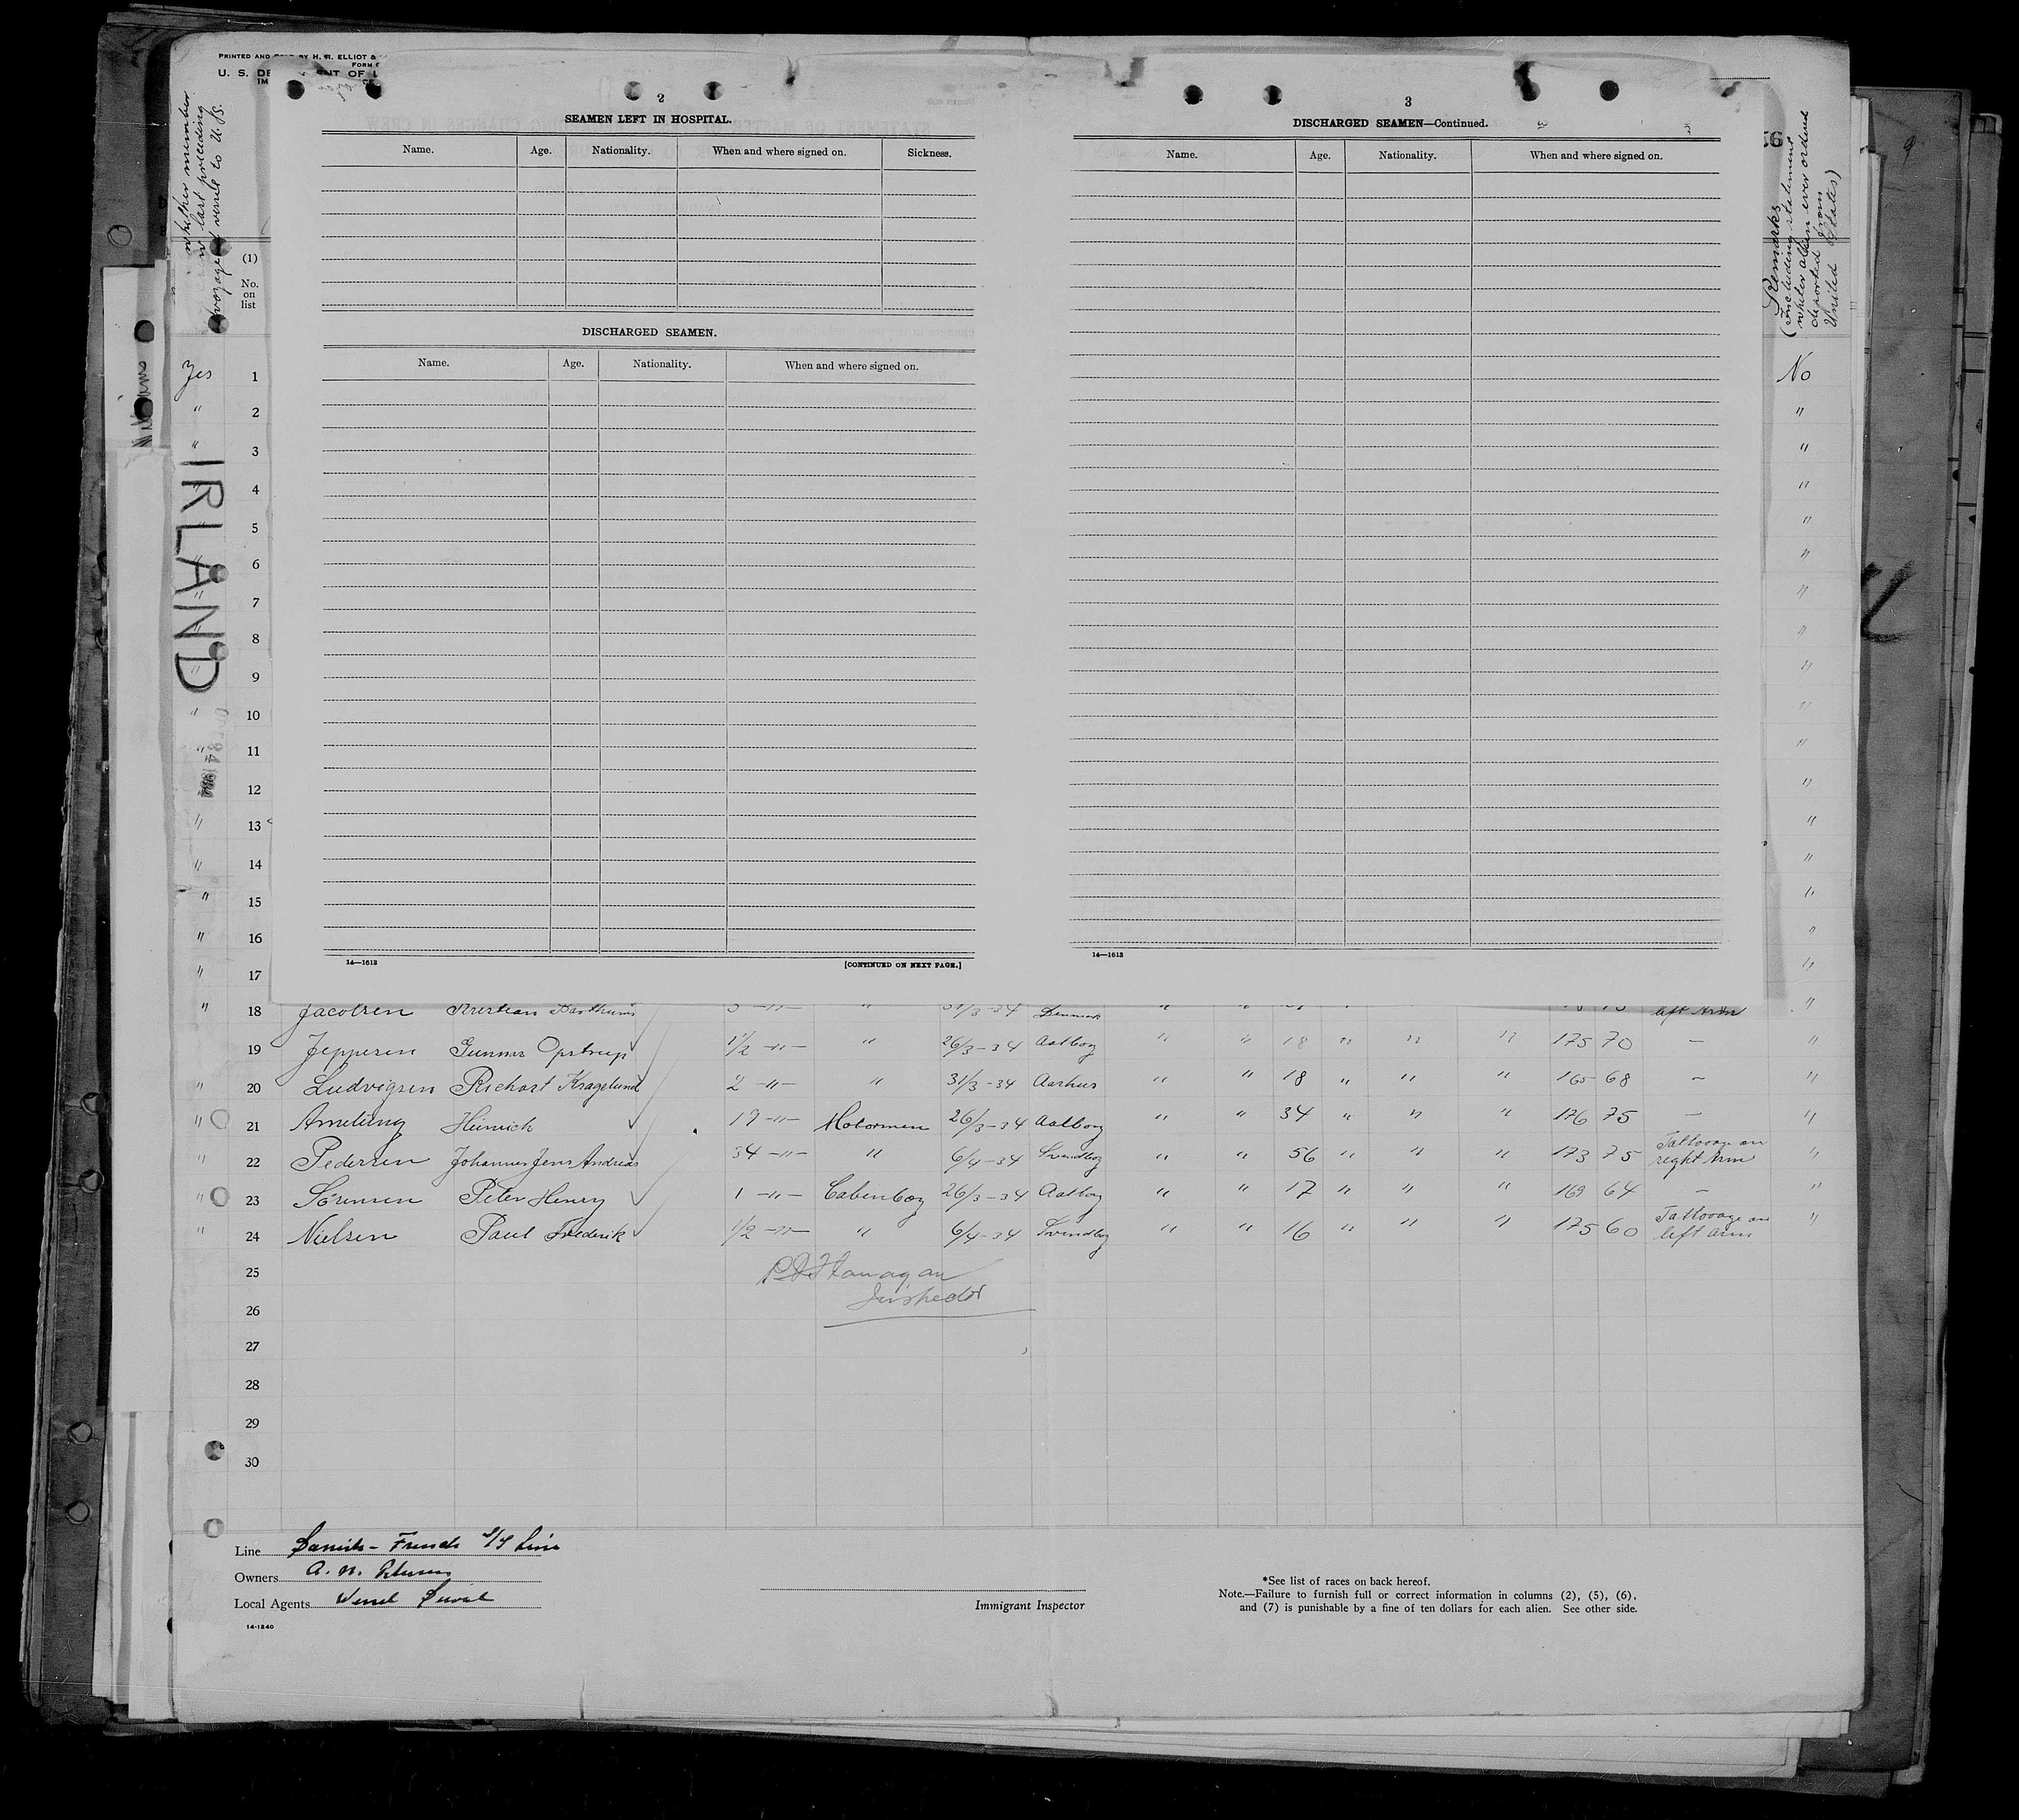 PRINTED AND
BY H. R. ELLIOT &
FORM
U. S. DE
ENT OF L
IM
whether member
last preceding
voyage vessel to U.S.
2
SEAMEN LEFT IN HOSPITAL.
Name. Age. Nationality. When and where signed on. Sickness.
DISCHARGED SEAMEN.
Name. Age. Nationality. When and where signed on.
14—1613 [CONTINUED ON NEXT PAGE.]
3
DISCHARGED SEAMEN—Continued.
Name. Age. Nationality. When and where signed on.
14—1613
Remarks
(Including statement
whether alien ever ordered
deported from
United States)
(1)
No.
on
list
IRLAND
Yes 1 No
" 2 "
" 3 "
" 4 "
5 "
" 6 "
" 7 "
" 8 "
" 9 "
" 10 "
" 11 "
" 12 "
" 13 "
" 14 "
" 15 "
" 16 "
" 17 "
" 18 Jacobsen Kristian " 31/3-34 Denmark " " left Arm "
19 Jeppesen Gunnar Opstrup 1/2 -"- " 26/3-34 Aalborg " " 18 " " " 175 70 — "
" 20 Ludvigsen Richart Kragelund 2 -"- " 31/3-34 Aarhus " " 18 " " " 165 68 — "
" 21 Ameling Heinrich 17 -"- Motormen 26/3-34 Aalborg " " 34 " " " 176 75 — "
" 22 Pedersen Johannes Jens Andreas 34 -"- " 6/4-34 Svendborg " " 56 " " " 173 75 Tattooage on right Arm "
" 23 Sörensen Peter Henry 1 -"- Cabenboy 26/3-34 Aalborg " " 17 " " " 169 64 — "
" 24 Nielsen Paul Frederik 1/2 -"- " 6/4-34 Svendborg " " 16 " " " 175 60 Tattooage on left arm "
25
P Flanagan
Inspector
26
27
28
29
30
Line Danish - French S/S Line
Owners A. N. Petersen
Local Agents
14-1240
Immigrant Inspector
*See list of races on back hereof.
Note.—Failure to furnish full or correct information in columns (2), (5), (6),
and (7) is punishable by a fine of ten dollars for each alien. See other side.